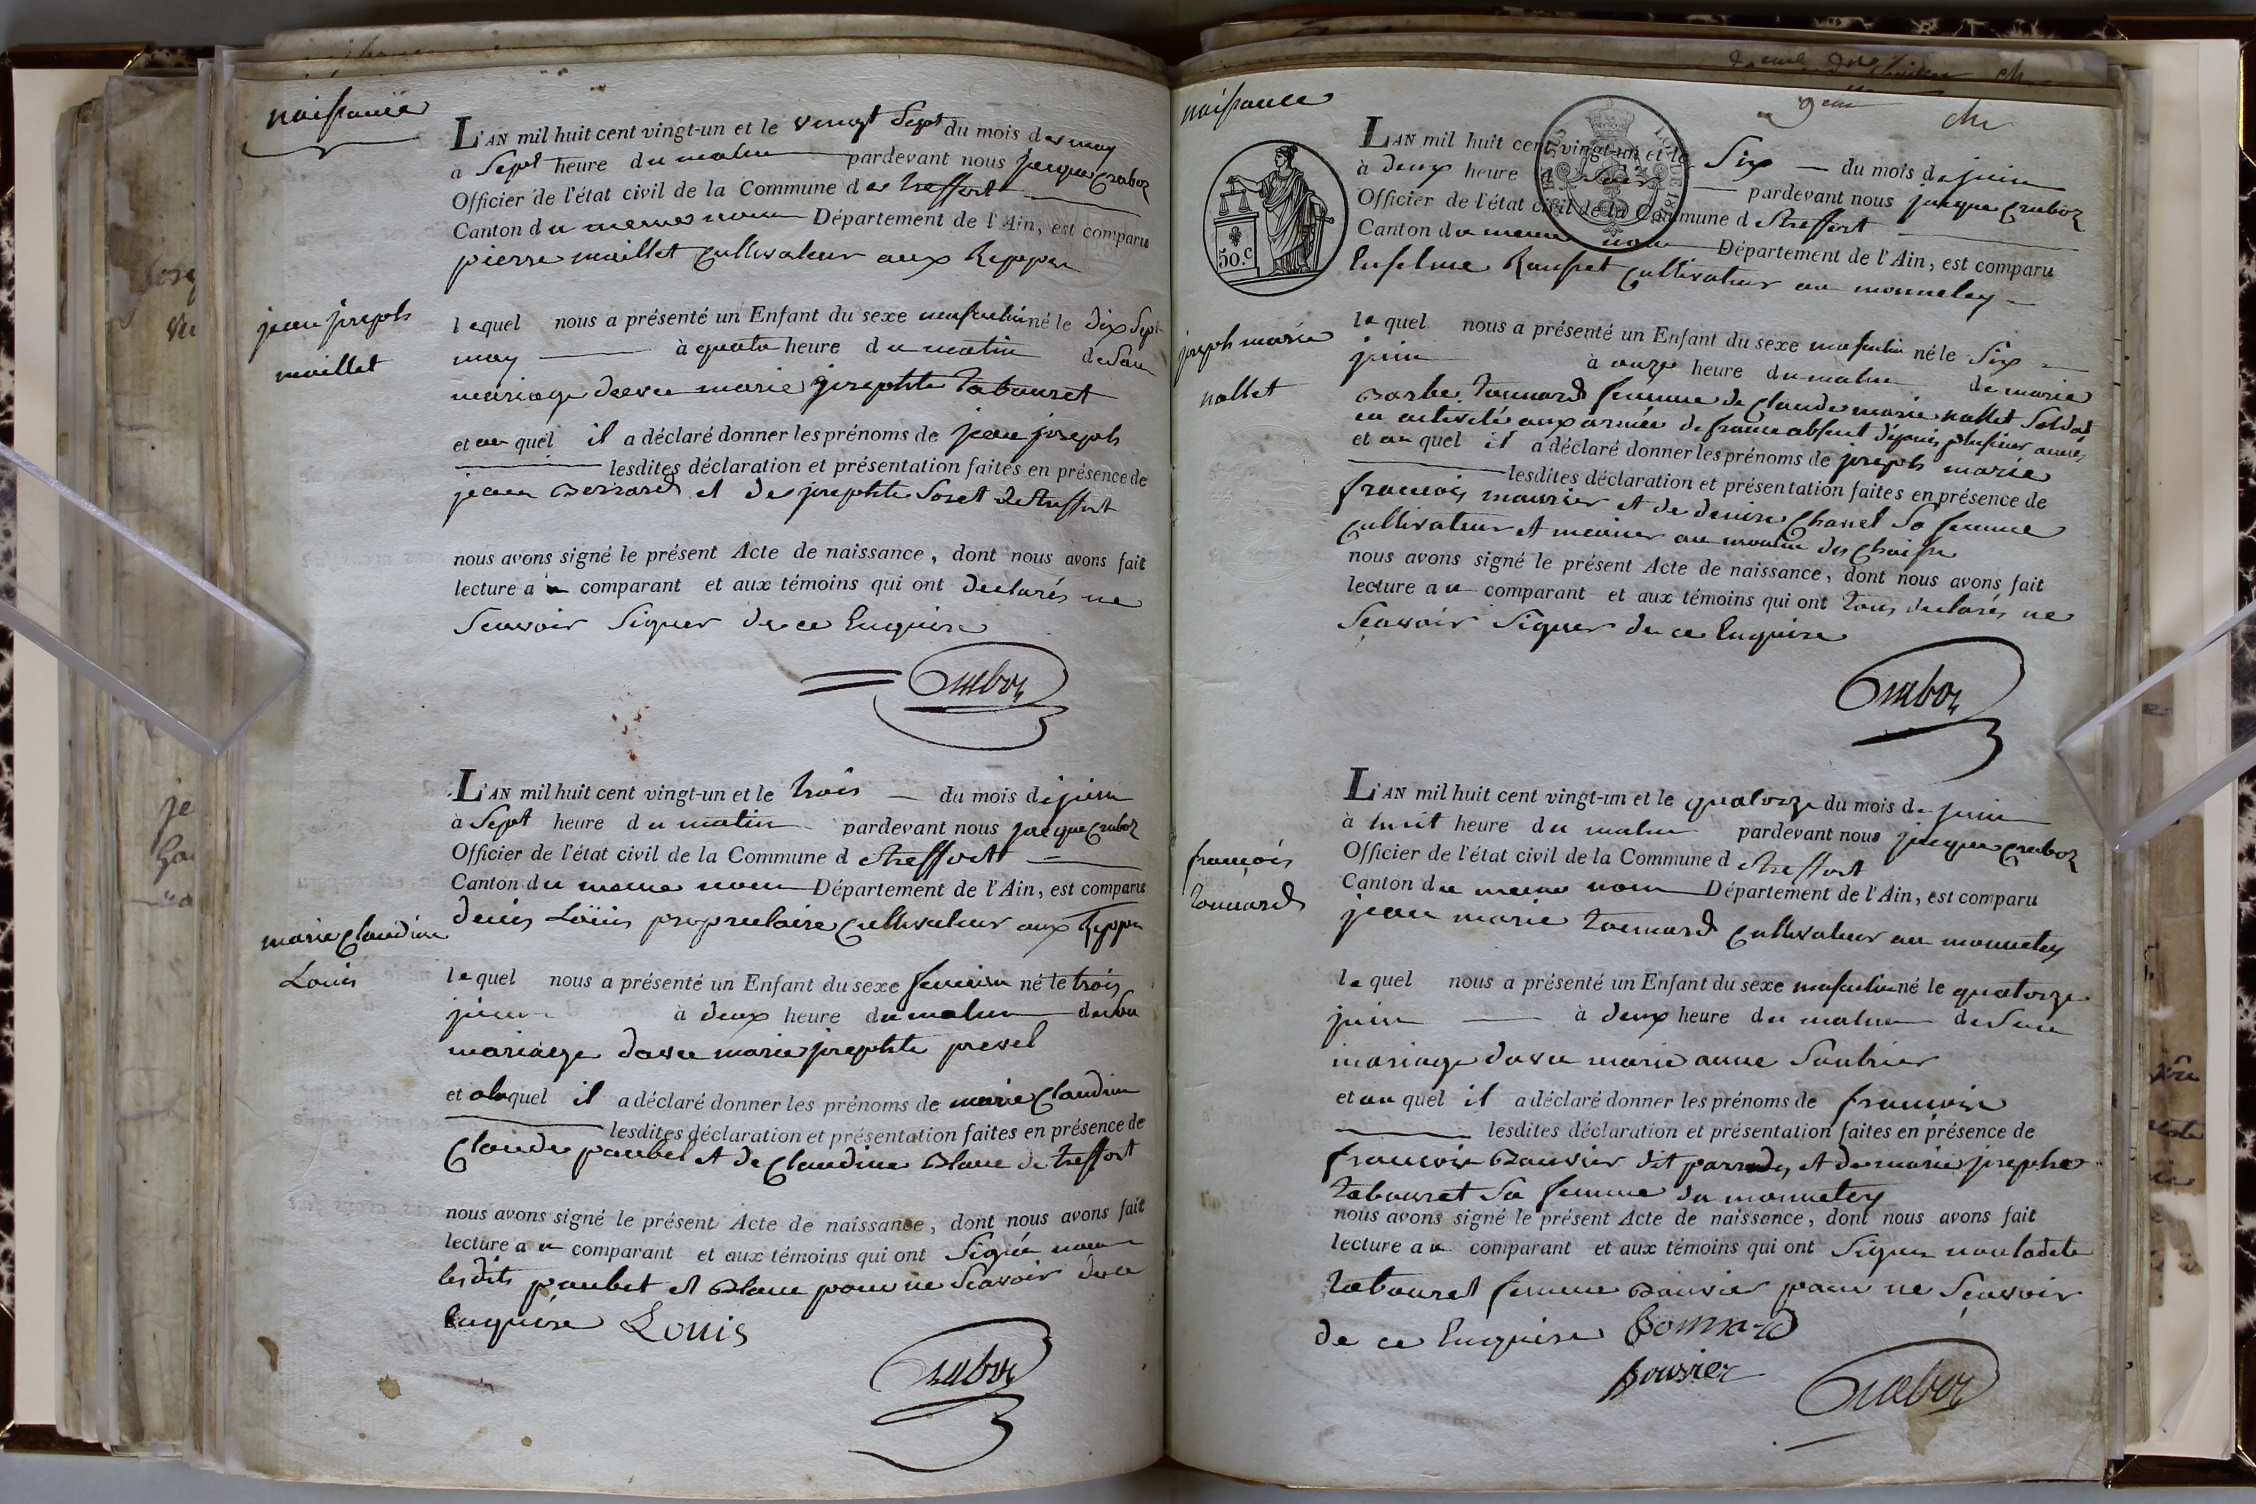 naissance
L'AN mil huit cent vingt-un et le vingt sept du mois de may
à sept heure du matin pardevant nous jacque Cruboz
Officier de l'état civil de la Commune de treffort
Canton du meme nom Département de l'Ain, est comparu
pierre maillet Cultivateur aux
jean joseph
maillet
lequel nous a présenté un Enfant du sexe masculin né le dix sept
may à quatre heure du matin de son
mariage avec marie josephte tabouret
et au quel il a déclaré donner les prénoms de jean joseph
lesdites déclaration et présentation faites en présence de
jean et de josephte de treffort
nous avons signé le présent Acte de naissance, dont nous avons fait
lecture au comparant et aux témoins qui ont declarés ne
scavoir signer de ce Enquire
Cruboz
L'AN mil huit cent vingt-un et le trois du mois de juin
à sept heure du matin pardevant nous jacque Cruboz
Officier de l'état civil de la Commune de treffort
Canton du meme nom Département de l'Ain, est comparu
denis Loüis proprietaire Cultivateur aux
marie Claudine
Louis
lequel nous a présenté un Enfant du sexe feminin né le trois
juin à deux heure du matin de son
mariage davec marie josephte
et alaquel il a déclaré donner les prénoms de marie Claudine
lesdites déclaration et présentation faites en présence de
Claude paubel et de Claudine Blanc de treffort
nous avons signé le présent Acte de naissance, dont nous avons fait
lecture au comparant et aux témoins qui ont Signé non
lesdits paubel et Blanc pour ne scavoir de ce
Enquire Louis
Cruboz
naissance
L'AN mil huit cent vingt-un et le Six du mois de juin
à deux heure du soir pardevant nous jacque Cruboz
Officier de l'état civil de la Commune de treffort
Canton du meme nom Département de l'Ain, est comparu
50.c
Cultivateur au monnetay
joseph marie
nallet
lequel nous a présenté un Enfant du sexe masculin né le Six
juin à onze heure du matin de marie
Barbe tonnard femme de Claude marie nallet Soldat
en activité aux armée de france absent depuis plusieur année
et au quel il a déclaré donner les prénoms de joseph marie
lesdites déclaration et présentation faites en présence de
francois maurier et de denise Charvet sa femme
Cultivateur et meunier au moulin des
nous avons signé le présent Acte de naissance, dont nous avons fait
lecture au comparant et aux témoins qui ont tous declarés ne
scavoir signer de ce Enquire
Cruboz
L'AN mil huit cent vingt-un et le quatorze du mois de juin
à huit heure du matin pardevant nous jacque Cruboz
françois
tonnard
Officier de l'état civil de la Commune de treffort
Canton du meme nom Département de l'Ain, est comparu
jean marie tonnard Cultivateur au monnetay
lequel nous a présenté un Enfant du sexe masculin né le quatorze
juin à deux heure du matin de son
mariage davec marie anne
et au quel il a déclaré donner les prénoms de francois
lesdites déclaration et présentation faites en présence de
francois Bouvier dit et de marie josephte
tabouret sa femme du monnetay
nous avons signé le présent Acte de naissance, dont nous avons fait
lecture au comparant et aux témoins qui ont Signer non ladite
tabouret femme Bouvier pour ne scavoir
de ce Enquire tonnard
Bouvier
Cruboz